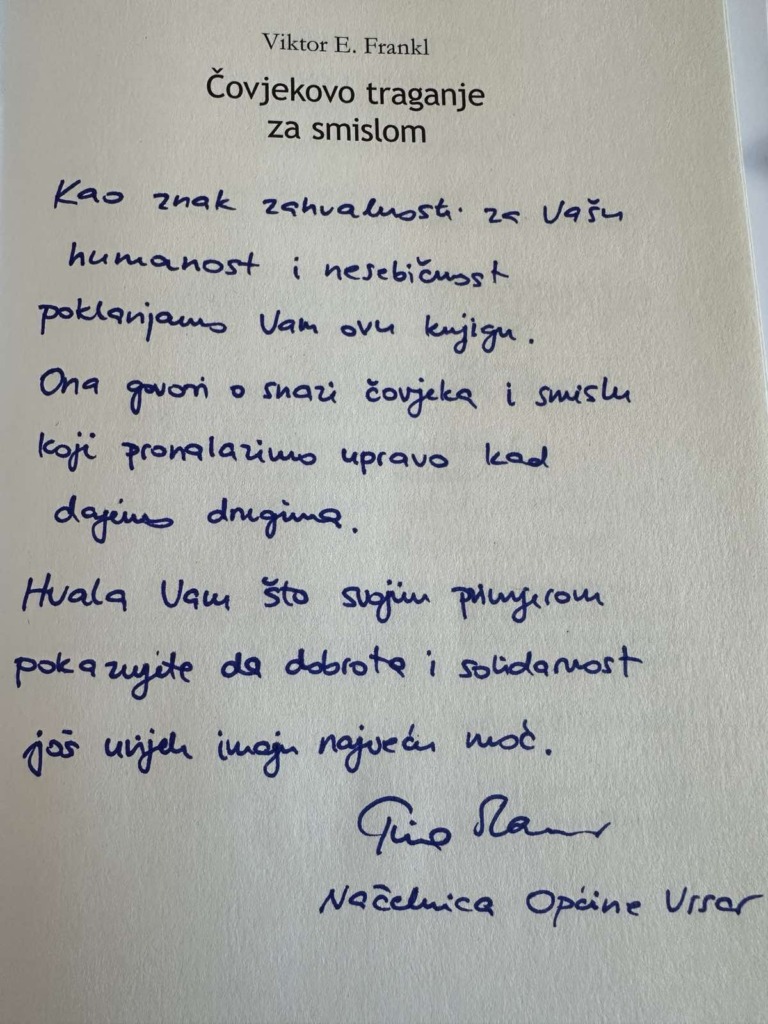 Viktor E. Frankl
Čovjekovo traganje
za smislom
Kao znak zahvalnosti za Vašu
humanost i nesebičnost
poklanjamo Vam ovu knjigu.
Ona govori o snazi čovjeka i smislu
koji pronalazimo upravo kad
dajemo drugima.
Hvala Vam što svojim primjerom
pokazujete da dobrota i solidarnost
još uvijek imaju najveću moć.
Načelnica Općine Vrsar